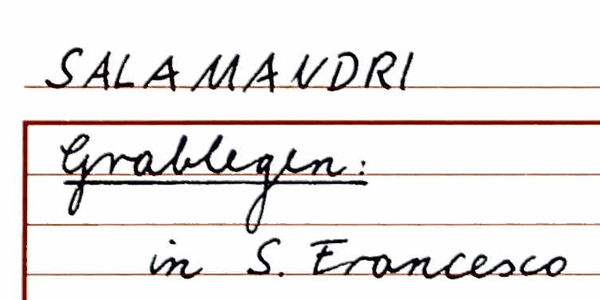 SALAMANDRI
Grablegen:
in S. Francesco